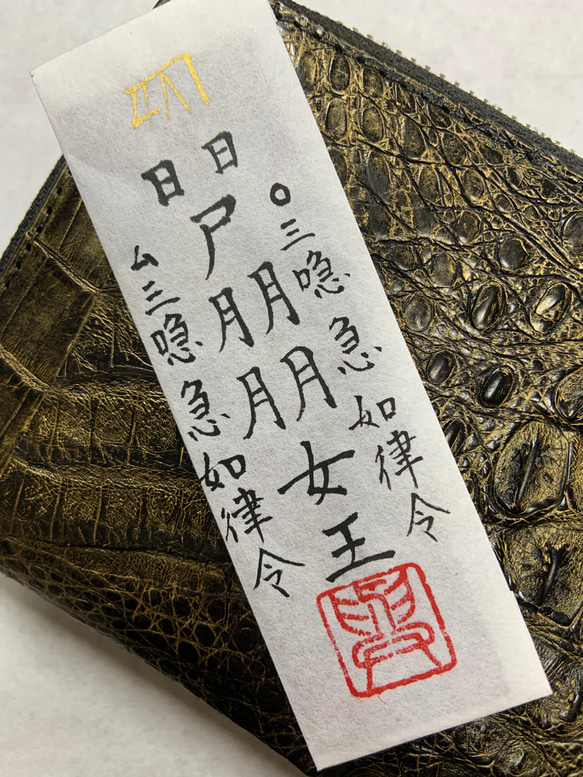 〇三喼急如律令
日日尸月月月月月月女王
ム三喼急如律令